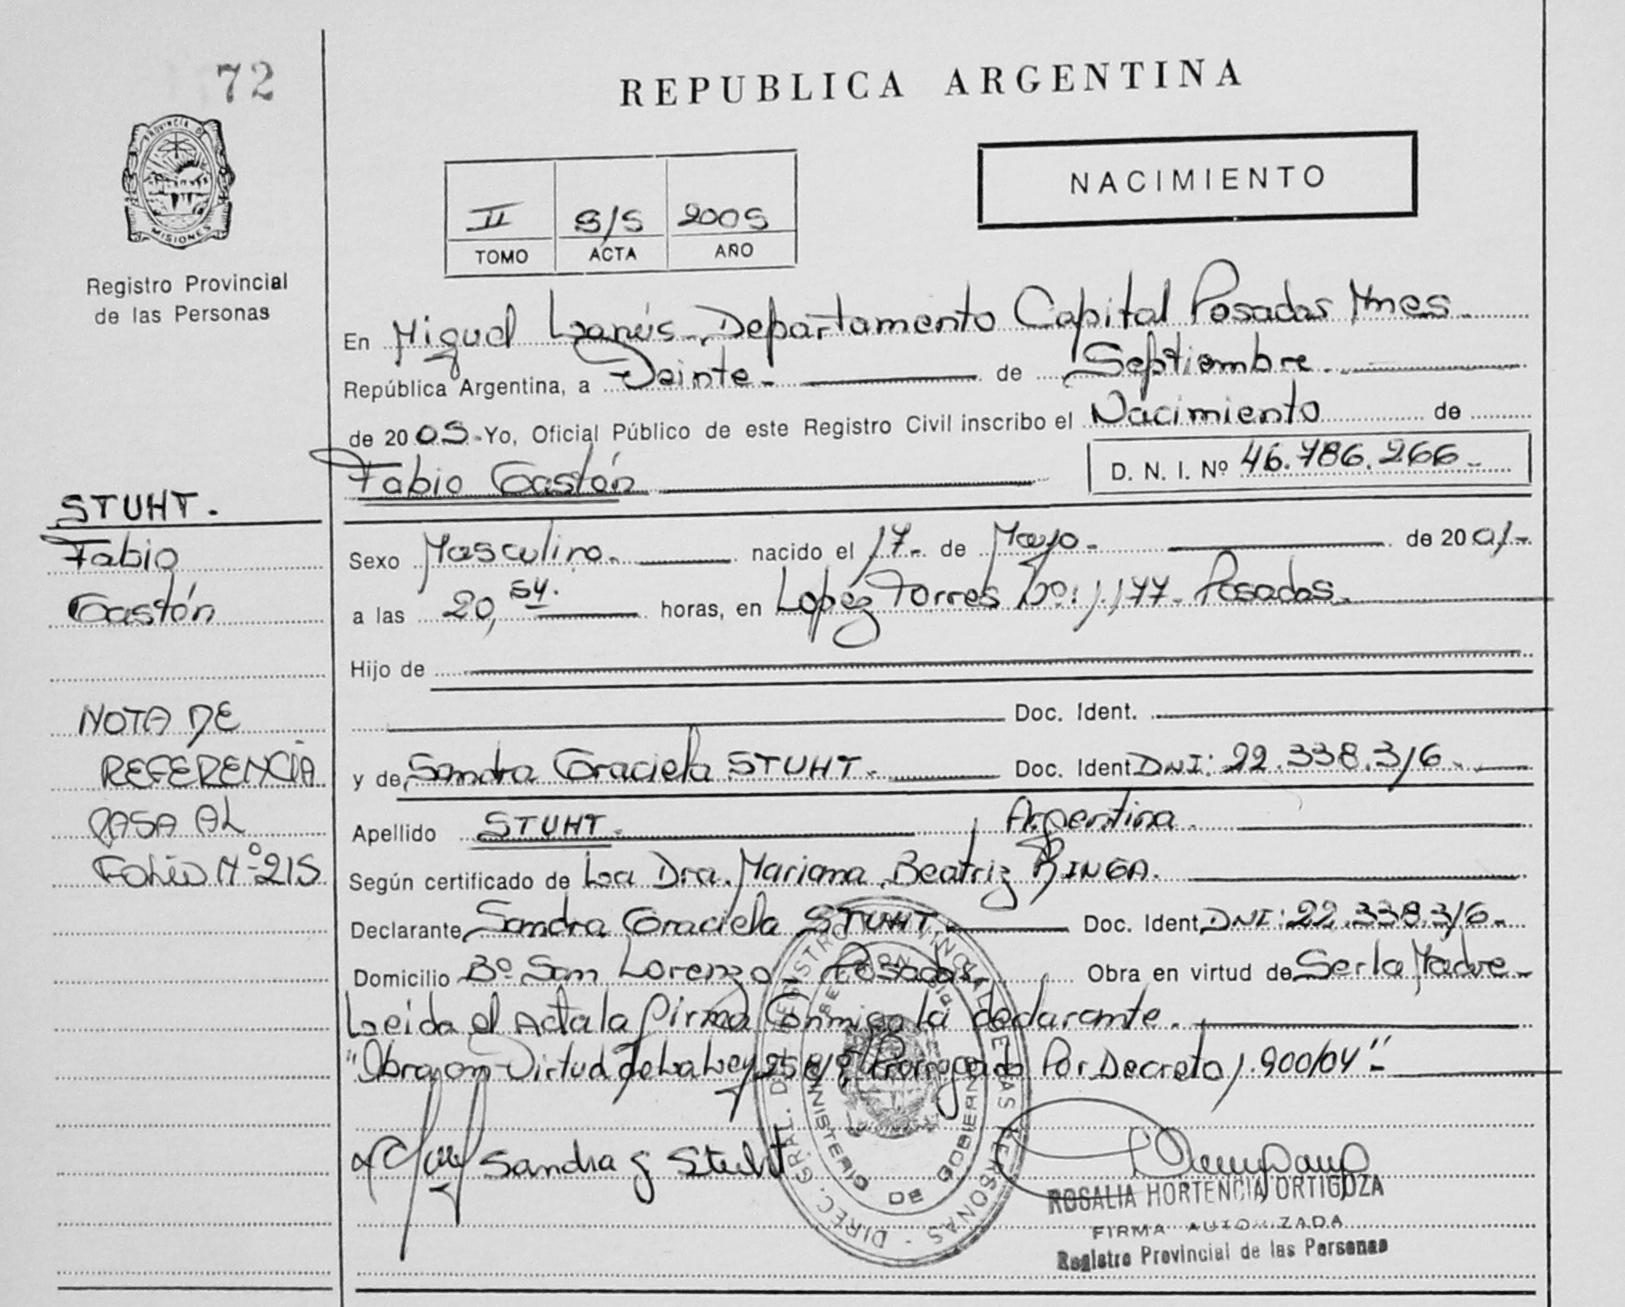 72
REPUBLICA ARGENTINA
NACIMIENTO
PROVINCIA DE
MISIONES
Registro Provincial
de las Personas
II S/S 2005
TOMO ACTA AÑO
En Miguel Lanús, Departamento Capital Posadas Mnes.
República Argentina, a Veinte - de Septiembre.
de 2005.- Yo, Oficial Público de este Registro Civil inscribo el Nacimiento de
Fabio Gastón D. N. I. Nº 46.786.266.-
STUHT.
Fabio
Gastón
Sexo Masculino. nacido el 17. de Mayo. de 2001.-
a las 20,54. horas, en Lopez Torres Nº: 1,177. Posadas.
Hijo de
Doc. Ident.
y de Sandra Graciela STUHT. Doc. Ident DNI: 22.338.316.
Apellido STUHT. Argentina.
Según certificado de La Dra. Mariana Beatriz RINGA.
Declarante Sandra Graciela STUHT. Doc. Ident. DNI: 22.338.316.-
Domicilio Bº San Lorenzo, Posadas. Obra en virtud de Ser la Madre.
Leida el Acta la firma Conmigo la declarante.
"Obra en Virtud de La Ley Prorrogado Por Decreto 1.900/04".-
NOTA DE
REFERENCIA
PASA AL
FOLIO Nº 215
Sandra G Stuht
DIREC. GRAL. DE REGISTRO PROVINCIAL DE LAS PERSONAS
MINISTERIO DE GOBIERNO
ROSALIA HORTENCIA ORTIGOZA
FIRMA AUTORIZADA
Registro Provincial de las Personas